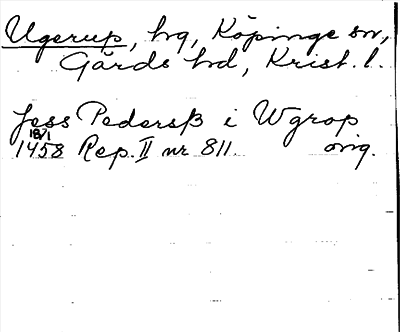 Ugerup, hg, Köpinge sn,
Gärds hd, Krist. l.
Jess Pedersß i Wgrop
18/1
1458 Rep. II nr 811. orig.